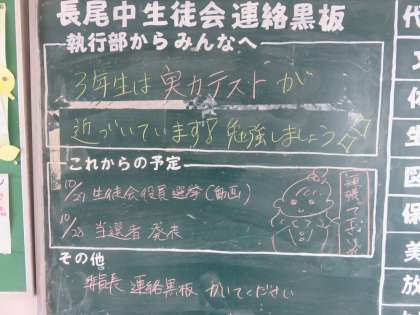 長尾中生徒会連絡黒板
執行部からみんなへ
3年生は実力テストが
近づいています!勉強しましょう
これからの予定
10/27 生徒会役員選挙(動画)
10/28 当選者発表
頑張って
その他
連絡黒板 かいてください
代
文
体
生
図
保
美
放